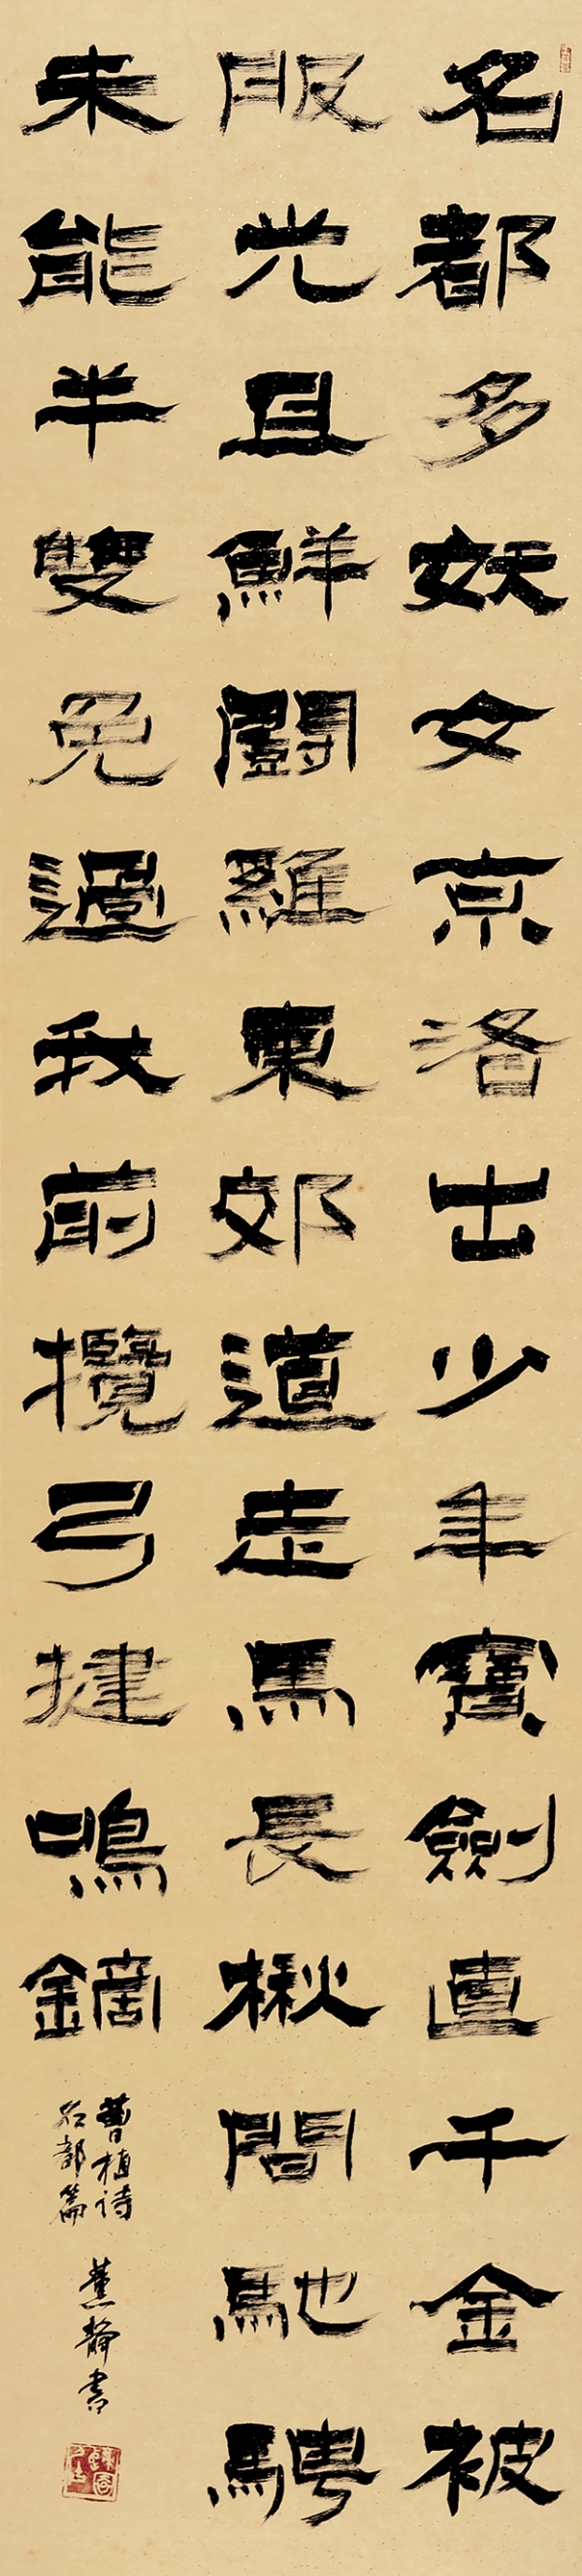 名都多妖女京洛出少年寶劍直千金被
服光且鮮鬪雞東郊道走馬長楸間馳騁
未能半雙兔過我前攬弓捷鳴鏑
曹植诗
名都篇
静书